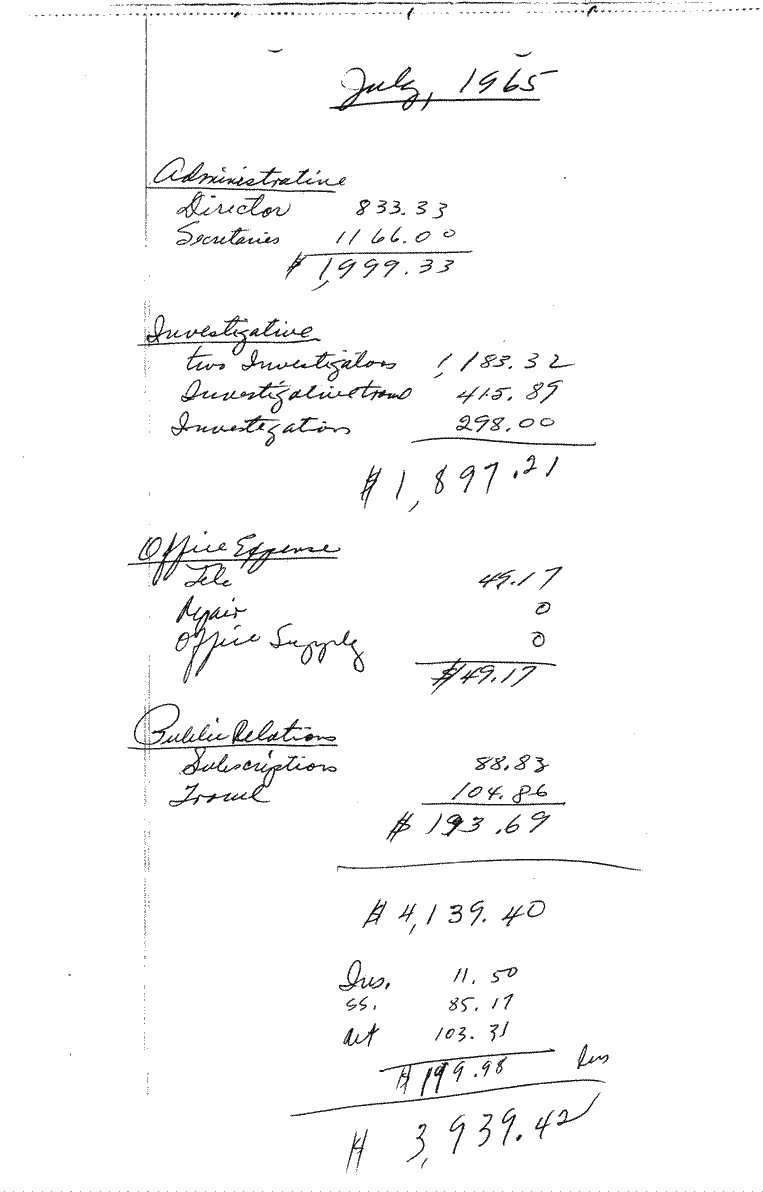 July, 1965
Administrative
Director 833.33
Secretaries 1166.00
$ 1,999.33
Investigative
two Investigators 1,183.32
Investigative travel 415.89
Investigation 298.00
$ 1,897.21
Office Expense
Tele 49.17
Repair 0
Office Supply 0
$49.17
Public Relations
Subscriptions 88.83
Travel 104.86
$ 193.69
$ 4,139.40
Ins. 11.50
SS. 85.17
ret 103.31
$ 199.98
$ 3,939.42